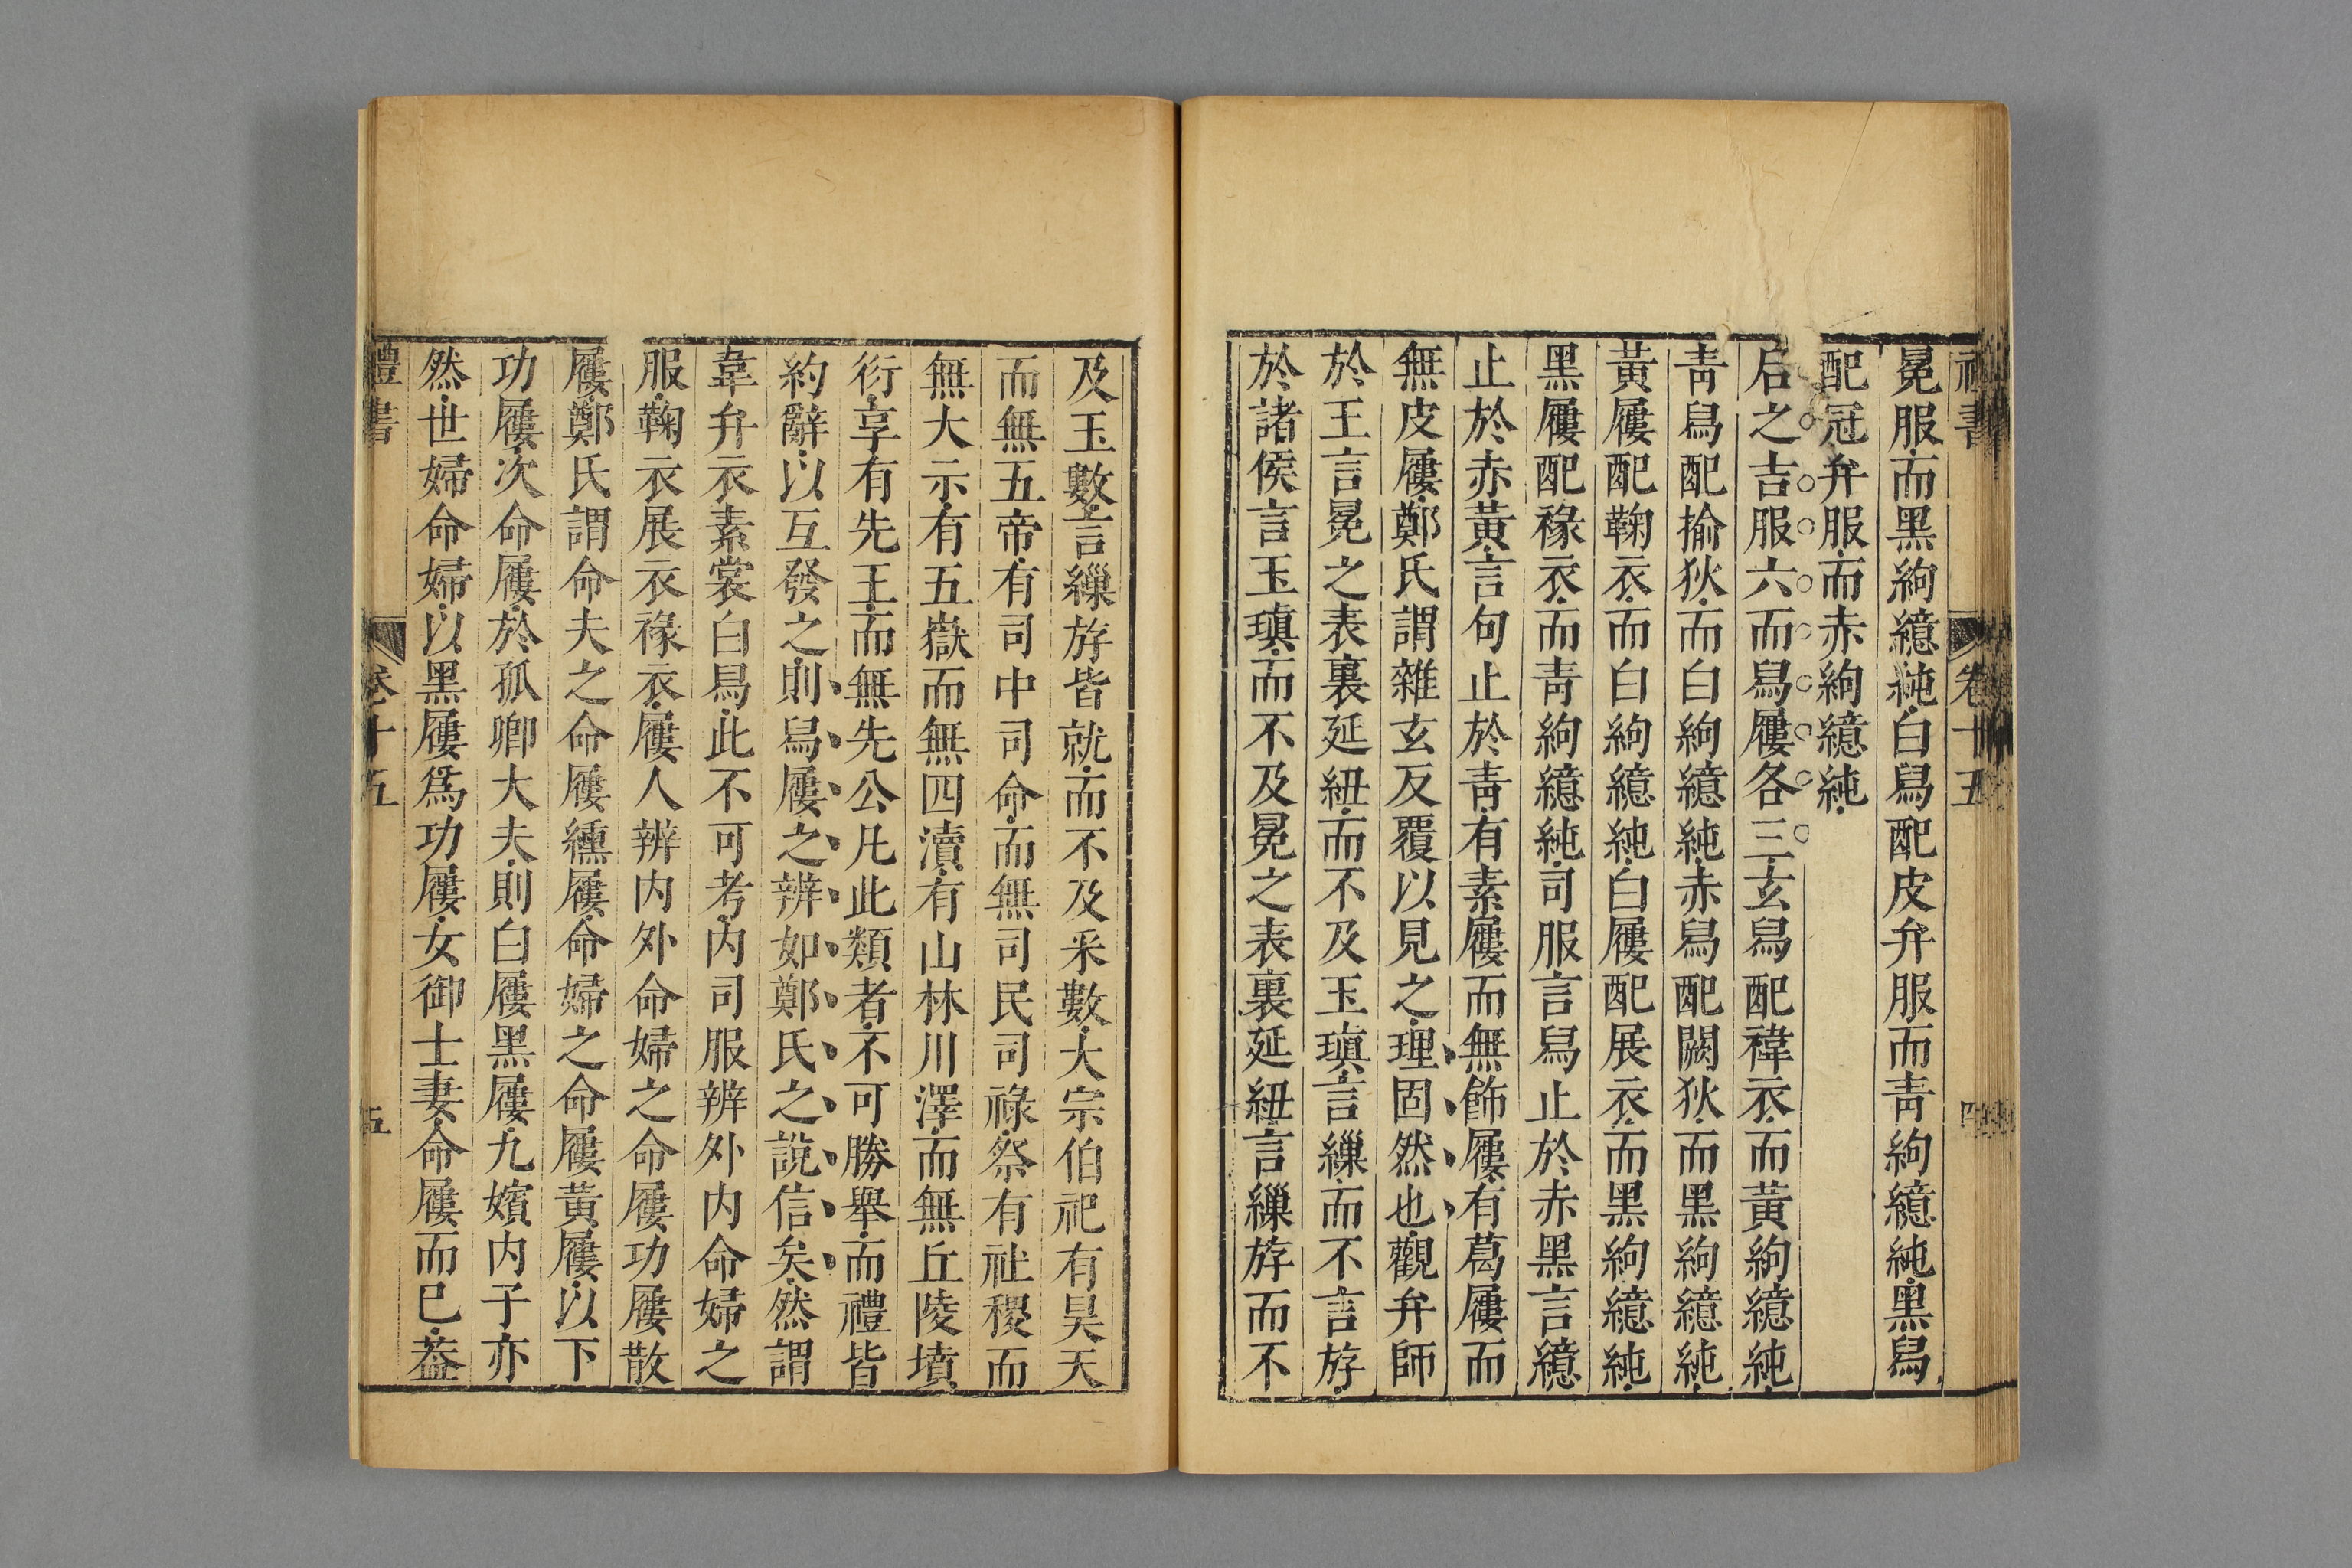 禮書 卷十五 四
冕服而黑絇繶純白舄配皮弁服而靑絇繶純黑舄
配冠弁服而赤絇繶純
后之吉服六而舄屨各三玄舄配褘衣而黃絇繶純
靑舄配揄狄而白絇繶純赤舄配闕狄而黑絇繶純
黃屨配鞠衣而白絇繶純白屨配展衣而黑絇繶純
黑屨配褖衣而靑絇繶純司服言舄止於赤黑言繶
止於赤黃言句止於靑有素屨而無飾屨有葛屨而
無皮屨鄭氏謂雜玄反覆以見之理固然也觀弁師
於王言冕之表裏延紐而不及玉瑱言繅而不言斿
於諸侯言玉瑱而不及冕之表裏延紐言繅斿而不
及玉數言繅斿皆就而不及采數大宗伯祀有昊天
而無五帝有司中司命而無司民司祿祭有社稷而
無大示有五嶽而無四瀆有山林川澤而無丘陵墳
衍享有先王而無先公凡此類者不可勝舉而禮皆
約辭以互發之則舄屨之辨如鄭氏之說信矣然謂
韋弁衣素裳白舄此不可考內司服辨外內命婦之
服鞠衣展衣褖衣屨人辨內外命婦之命屨功屨散
屨鄭氏謂命夫之命屨纁屨命婦之命屨黃屨以下
功屨次命屨於孤卿大夫則白屨黑屨九嬪內子亦
然世婦命婦以黑屨爲功屨女御士妻命屨而已葢
禮書 卷十五 五